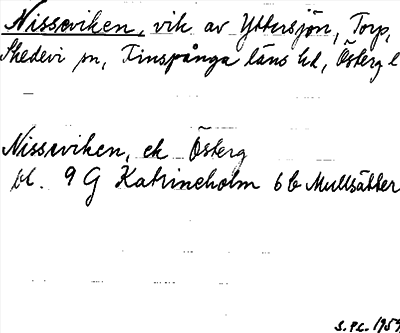 Nisseviken, vik av Yttersjön, Torp,
Skedevi sn, Finspånga läns hd, Österg l
Nisseviken, ek Österg
bl. 9 G Katrineholm 6 b Mullsätter
1959